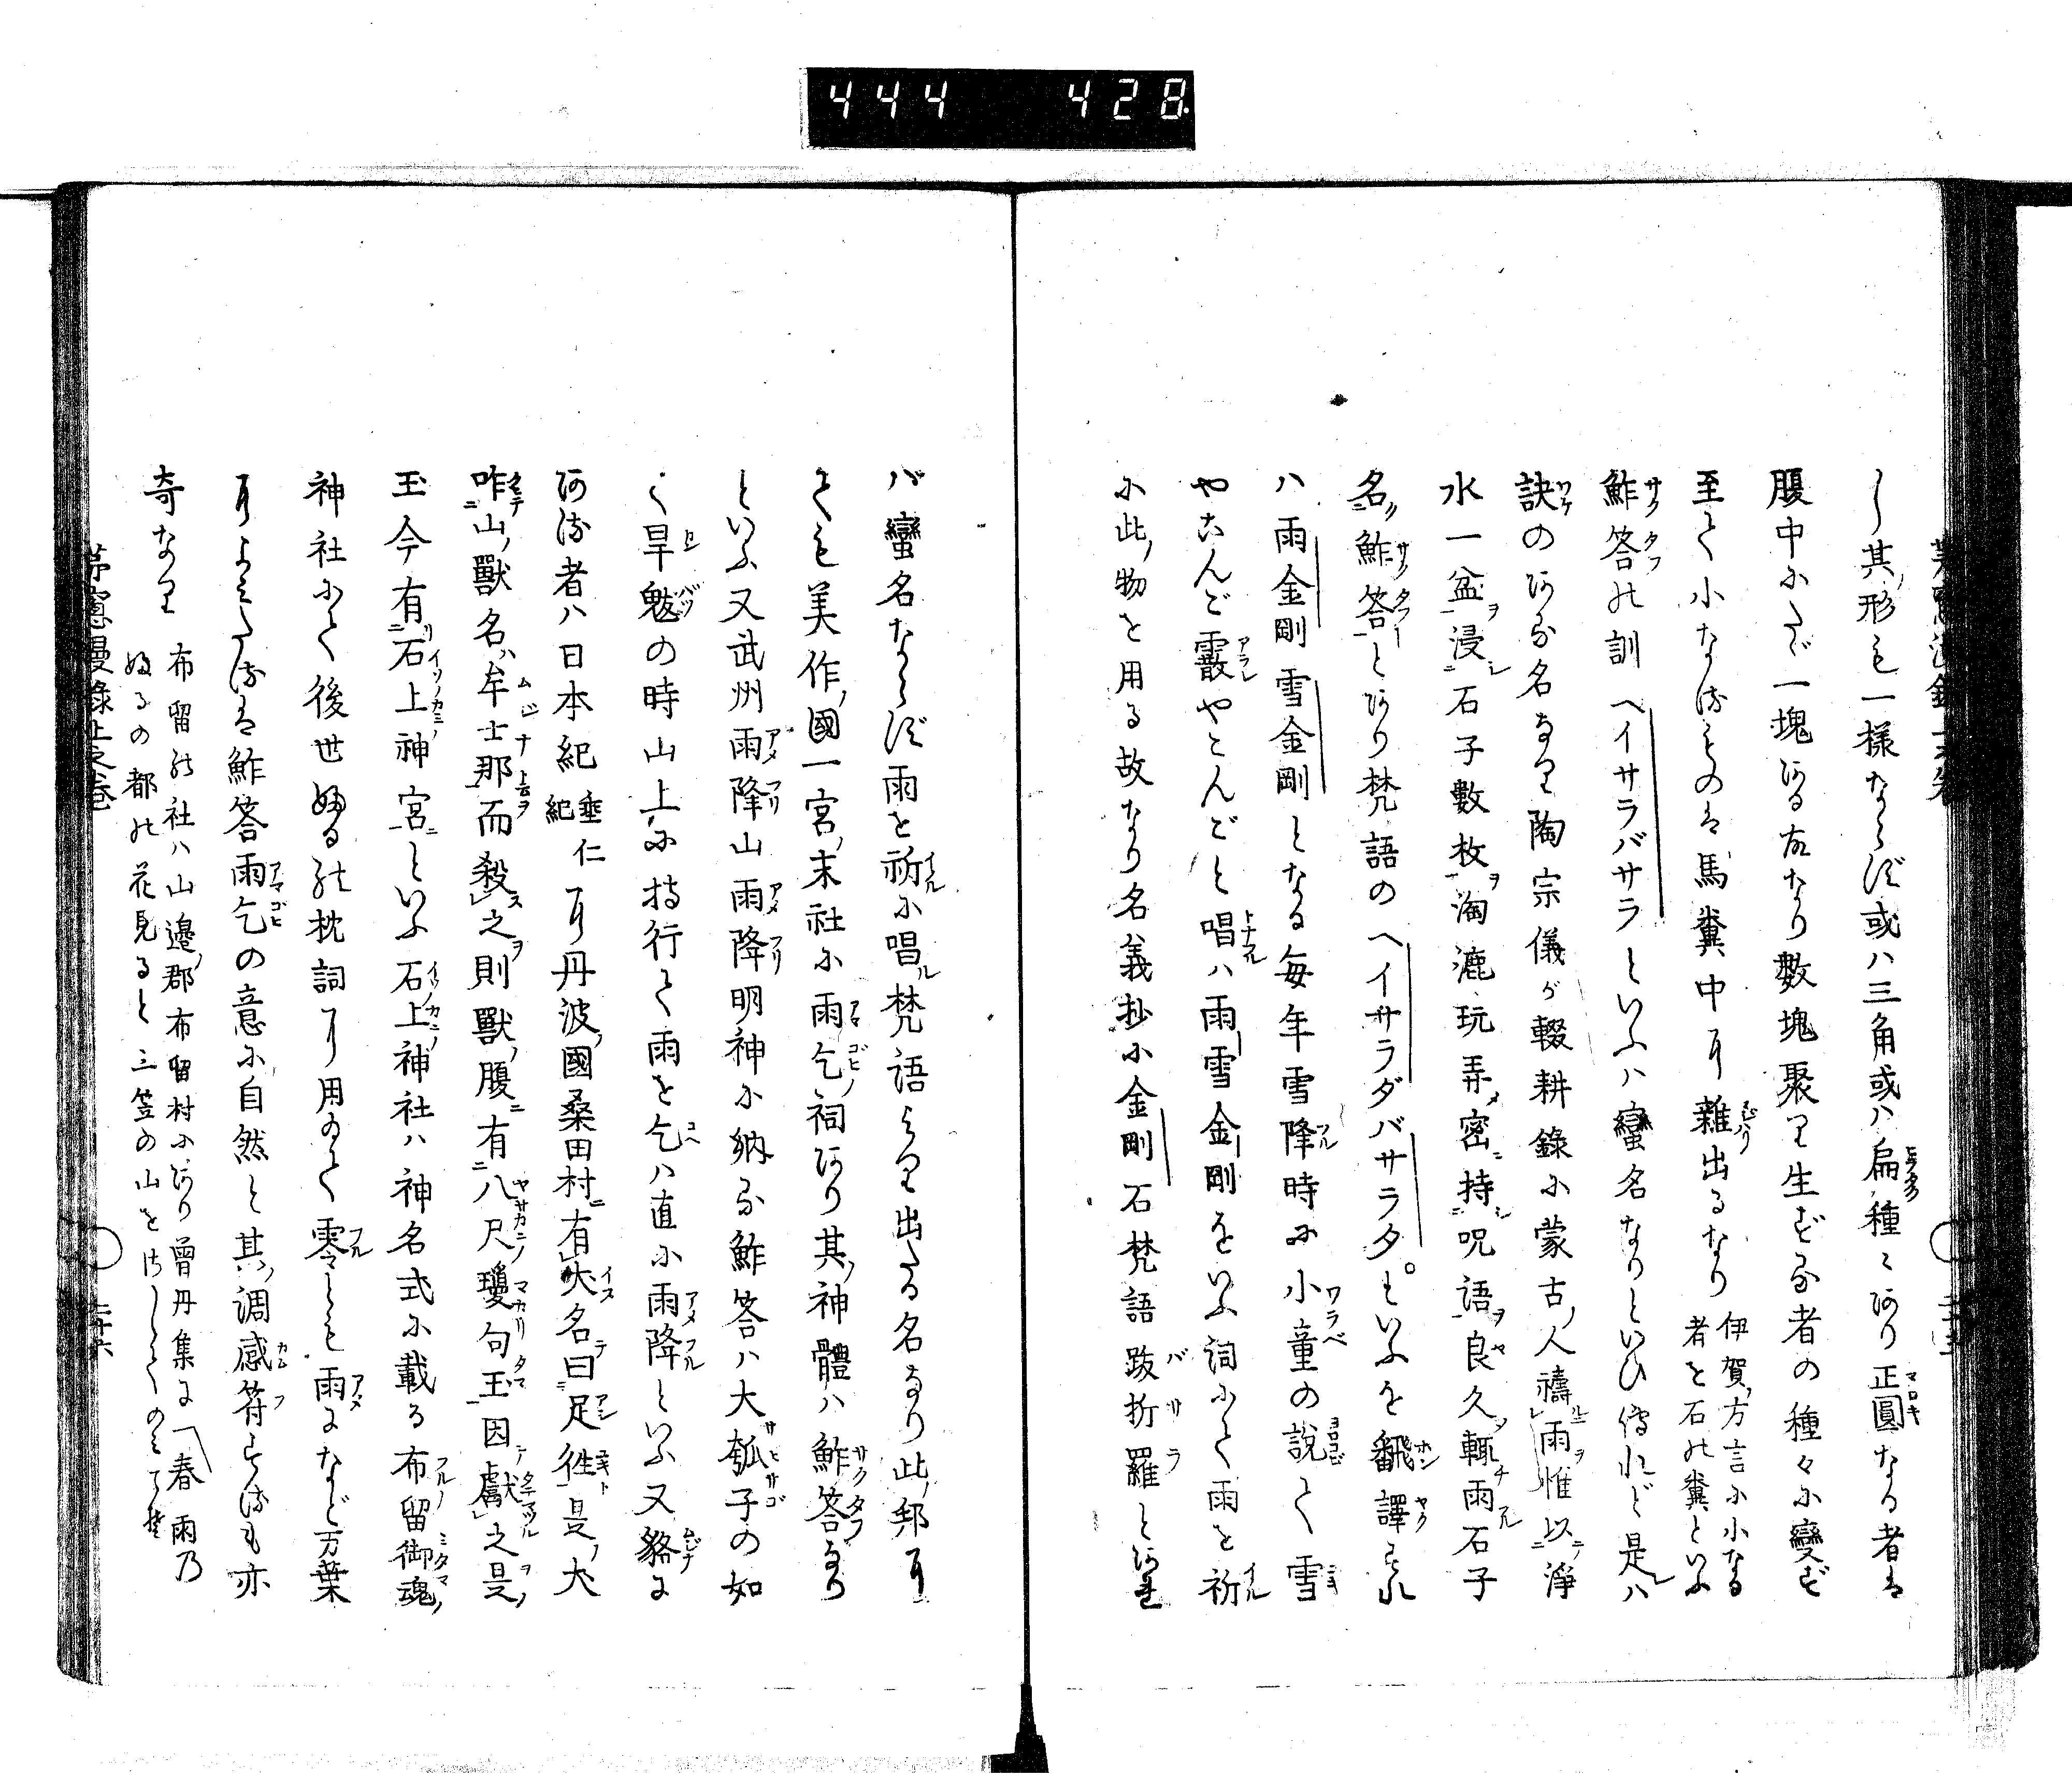 444 428
し其ノ形も一樣ならず或ハ三角或ハ扁種々あり正圓なる者は
腹中にたゞ一塊ある故なり數塊聚り生ずる者の種々に變ず
至て小なるものは馬糞中に雜出るなり伊賀ノ方言に小なる
者を石の糞といふ
鮓答の訓ヘイサラバサラといふハ蠻名なりといひ傳れど是ハ
訣のある名なり陶宗儀ガ輟耕錄に蒙古ノ人禱雨惟以淨
水一盆浸石子數枚淘漉玩弄密持呪語良久輒雨石子
名鮓答とあり梵語のヘイサラダバサラタといふを飜譯すれ
ハ雨金剛雪金剛となる每年雪降時に小童の說て雪
やこんご霰やこんごと唱ハ雨雪金剛をいふ詞にて雨を祈
に此ノ物を用る故なり名義抄に金剛石梵語跋折羅とあれ
バ蠻名ならず雨を祈に唱ル梵語より出たる名なり此ノ邦に
ても美作ノ國一宮ノ末社に雨乞ノ祠あり其ノ神體ハ鮓答なり
といふ又武州雨降山雨降明神に納る鮓答ハ大瓠子の如
く旱魃の時山上に持行て雨を乞ハ直に雨降といふ又貉に
ある者ハ日本紀垂仁紀に丹波ノ國桑田村有犬名曰足往是ノ犬
咋山ノ獸名ハ牟士那而殺之則獸ノ腹有八尺瓊勾玉因獻之是ノ
玉今有石上神宮といふ石上ノ神社ハ神名式に載る布留御魂ノ
神社にて後世ふるの枕詞に用ゐて零とも雨になど万葉
によみたるは鮓答雨乞の意に自然と其ノ調感符するも亦
奇なり布留の社ハ山邊ノ郡布留村にあり曾丹集に「春雨乃
ふるの都の花見ると三笠の山を
茅窻漫錄上之巻 二十六